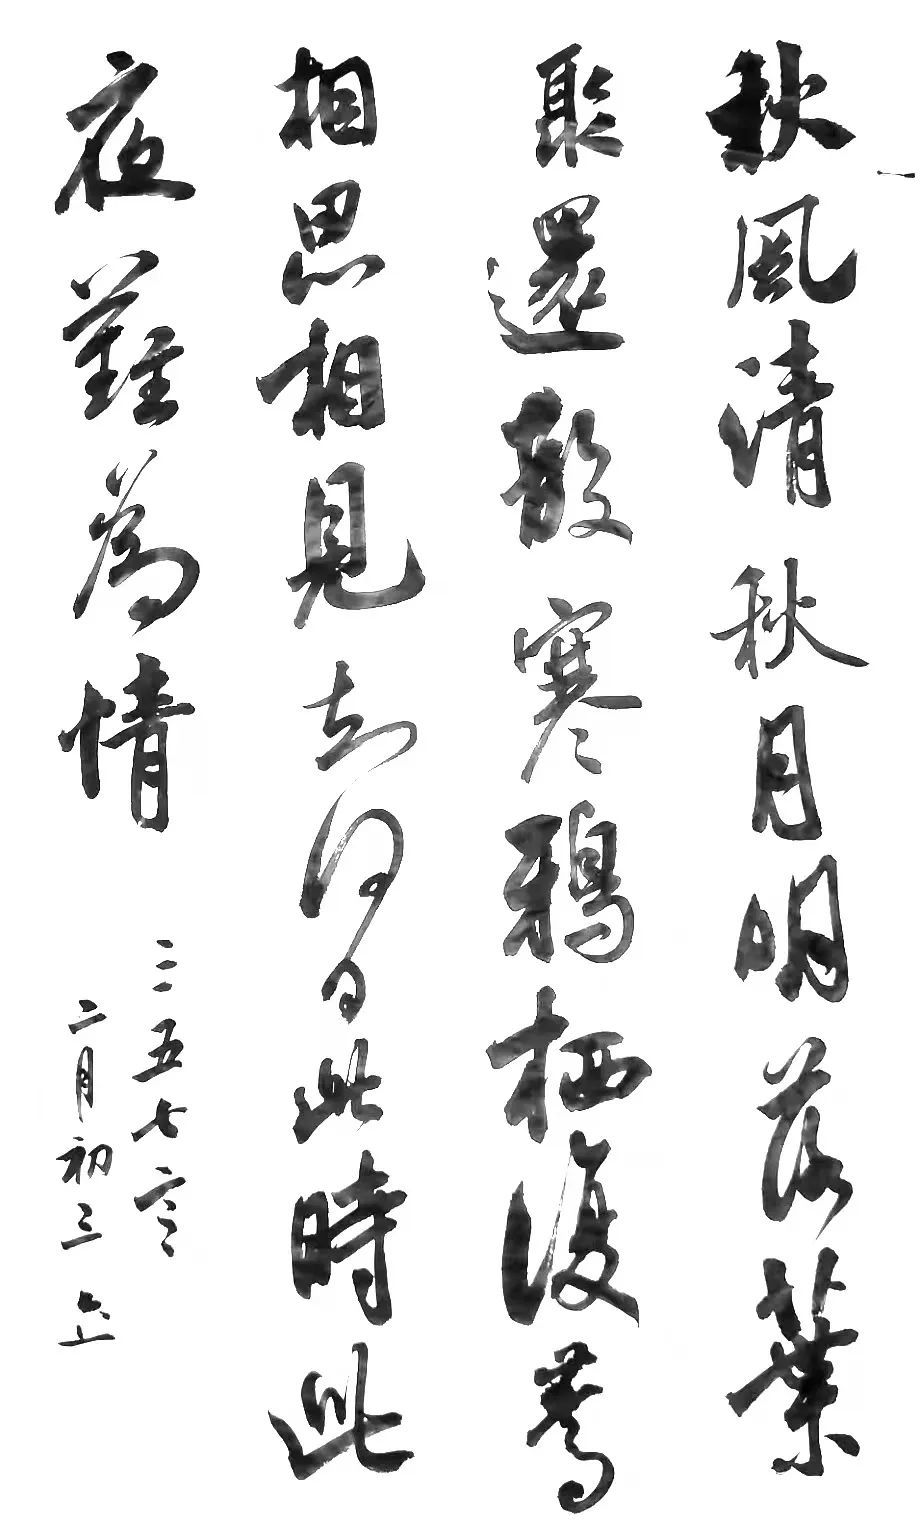 秋風清秋月明落葉
聚還散寒鴉栖復驚
相思相見知何日此時此
夜難為情
三五七言
二月初三